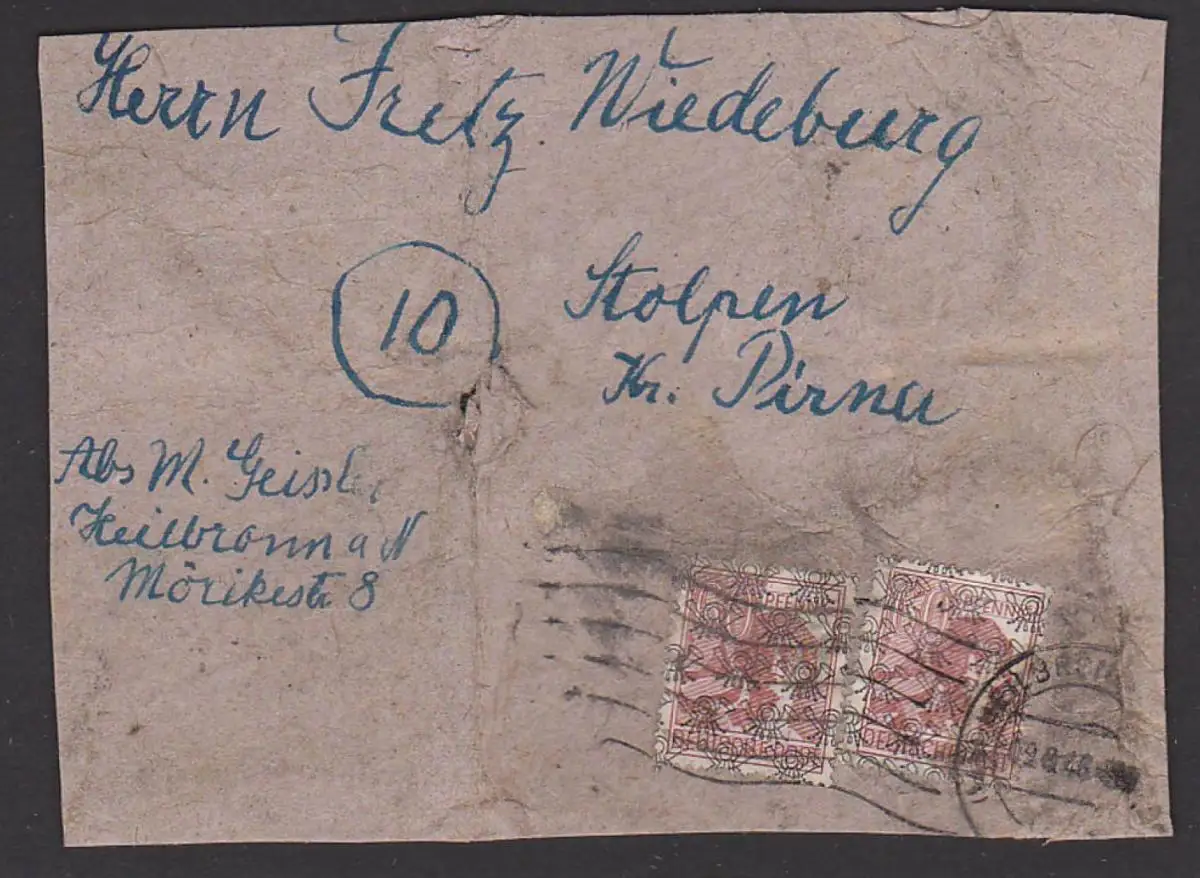 Herrn Fritz Wiedeburg
10
Stolpen
Kr. Pirna
Abs M. Geissler
Heilbronn a N
Mörikestr 8
PFENNIG PFENNIG
DEUTSCHE POST DEUTSCHE POST
19.8.48